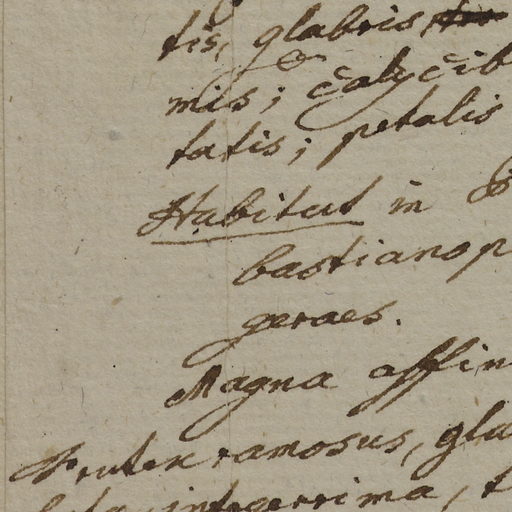 tis, glabris,
mis; calycib
tatis; petalis
Habitat in
bastianop
geraes.
Magna affin
Frutex ramosus, gla
integerrima,